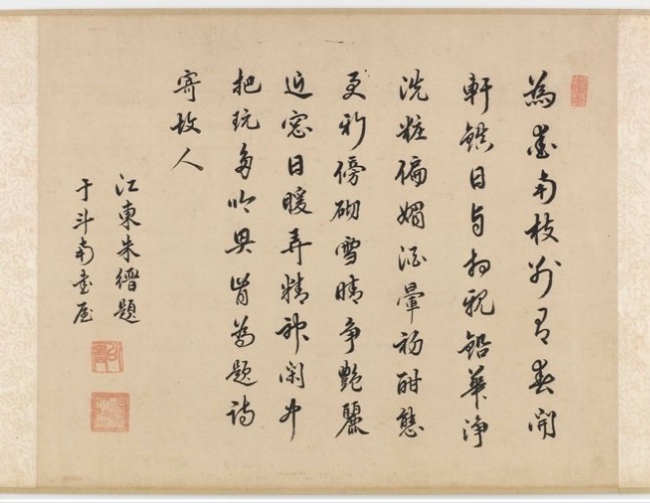 為愛南枝別有春開
軒鎮日与相親鉛華淨
洗粧偏媚酒暈初酣態
更新傍砌雪晴爭艷麗
近窓日暖弄精神閑中
把玩多吟興肯為題詩
寄故人
江東朱題
于斗南書屋